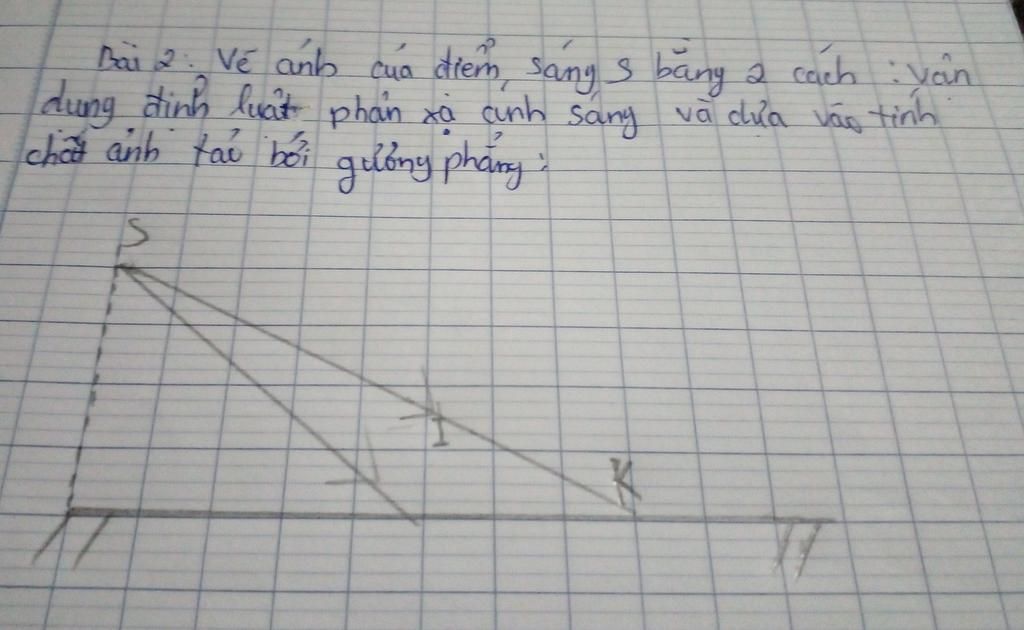 Bài 2: Vẽ ảnh của điểm sáng S bằng 2 cách : vận
dụng định luật phản xạ ánh sáng và dựa vào tính
chất ảnh tạo bởi gương phẳng :
S
I
K